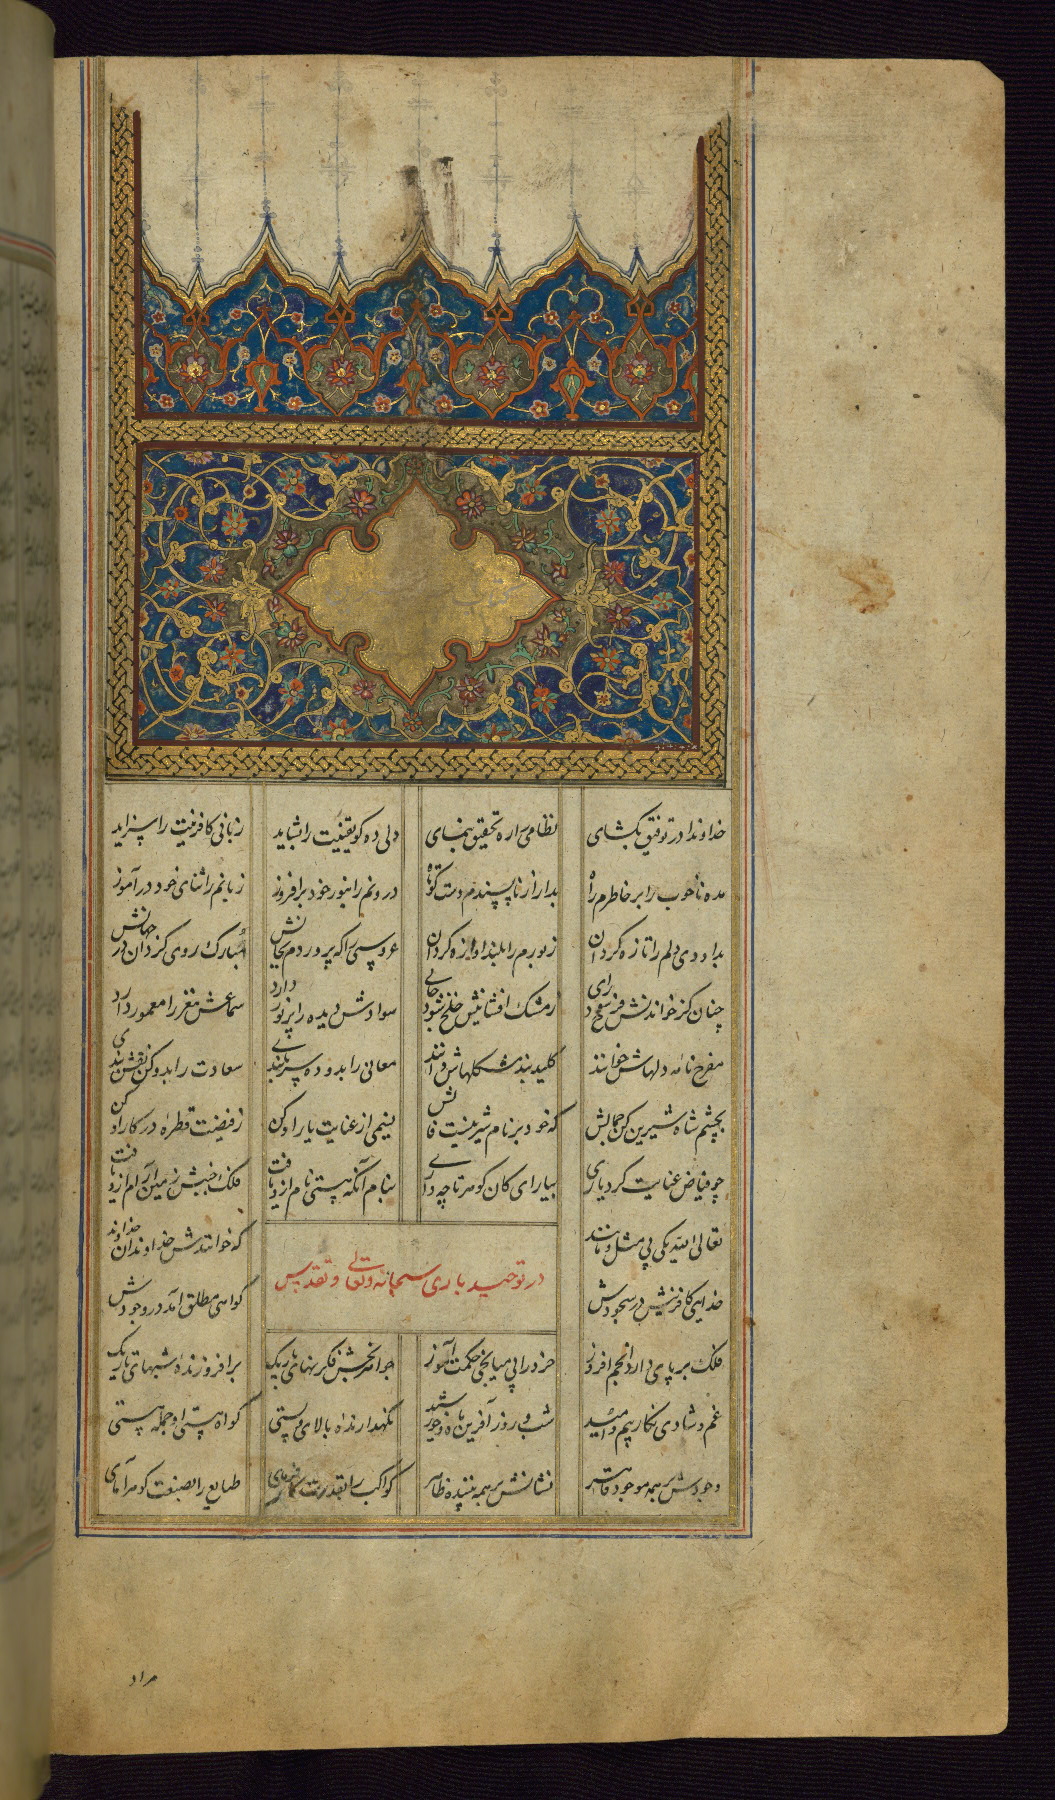 خداوندا در توفیق بگشای نظامی را ره تحقیق بنمای دلی ده کو یقینت را بشاید زبانی کافرینت را سراید
مده ناخوب را بر خاطرم راه بدار از ناپسندم دست کوتاه درونم را بنور خود برافروز زبانم را ثنای خود درآموز
بداودی دلم را تازه گردان زبورم را بلند آوازه گردان عروسی را که پروردم بجانش مبارک روی گردان در جهانش
چنان کز خواندنش فرخ شود رای ز مشک افشانیش خلخ شود جای سوادش دیده را پر نور دارد سماعش مغز را معمور دارد
مفرح نامه دلهاش خوانند کلید بند مشکلهاش دانند معانی را بدو ده سربلندی سعادت را بدو کن نقش بندی
بچشم شاه شیرین کن جمالش که خود بر نام شیرینست فالش نسیمی از عنایت یار او کن ز فیضت قطره در کار او کن
چو فیاض عنایت کرد یاری بیار ای کان گوهر تا چه داری بنام آنکه هستی نام ازو یافت فلک جنبش زمین آرام ازو یافت
تعالی الله یکی بی مثل و مانند که خوانندش خداوندان خداوند
در توحید باری سبحانه وتعالی وتقدیس
خدایی کافرینش در سجودش گواهی مطلق آمد در وجودش
فلک بر پای دار و انجم افروز خرد را بی میانجی حکمت آموز جواهر بخش فکرتهای باریک برافروزنده شبهای تاریک
غم و شادی نگار و بیم و امید شب و روز آفرین و ماه و خورشید نگهدارنده بالا و پستی گواه هستی او جمله هستی
وجودش بر همه موجود قاهر نشانش بر همه بیننده ظاهر کواکب را بقدرت کارفرمای طبایع را بصنعت گوهر آمای
مراد